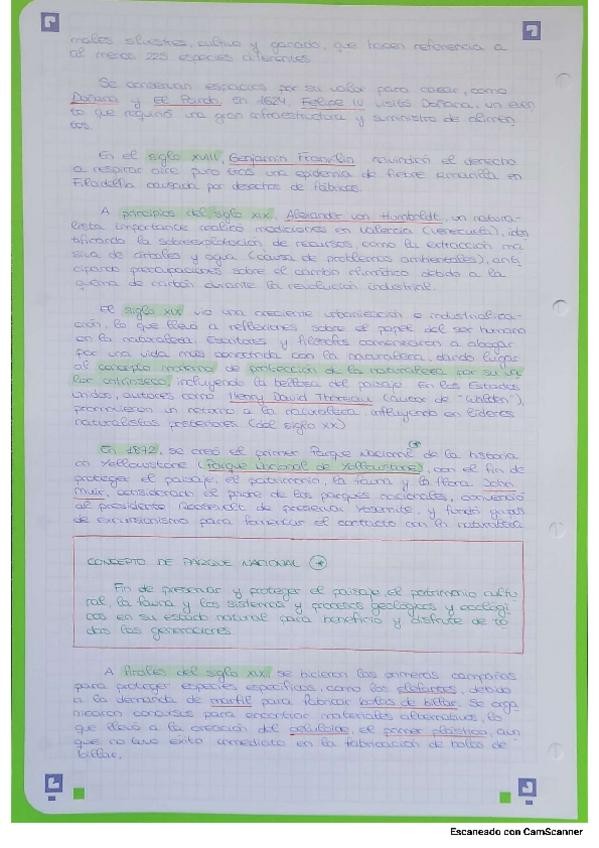 males silvestres, cultivo y ganado, que hacen referencia a
al menos 225 especies diferentes.
Se conservan espacios por su valor para cazar, como
Doñana y El Pardo. En 1624, Felipe IV visitó Doñana, un even
to que requirió una gran infraestructura y suministro de alimen
tos.
En el siglo XVIII, Benjamin Franklin reivindicó el derecho
a respirar aire puro tras una epidemia de fiebre amarilla en
Filadelfia causada por desechos de fábricas.
A principios del siglo XIX, Alexander von Humboldt, un natura-
lista importante realizó mediciones en Valencia (Venezuela), iden
tificando la sobreexplotación de recursos, como la extracción ma
siva de árboles y agua (causa de problemas ambientales), anti
cipando preocupaciones sobre el cambio climático debido a la
quema de carbón durante la revolución industrial.
El siglo XIX vio una creciente urbanización e industrializa-
ción, lo que llevó a reflexiones sobre el papel del ser humano
en la naturaleza. Escritores y filósofos comenzaron a abogar
por una vida más conectada con la naturaleza, dando lugar
al concepto moderno de protección de la naturaleza por su va
lor intrínseco, incluyendo la belleza del paisaje. En los Estados
Unidos, autores como Henry David Thoreau (autor de "Walden"),
promovieron un retorno a la naturaleza, influyendo en líderes
naturalistas posteriores (del siglo XX)
En 1872, se creó el primer Parque Nacional de la historia
en Yellowstone (Parque Nacional de Yellowstone), con el fin de
proteger el paisaje, el patrimonio, la fauna y la flora. John
Muir, considerado el padre de los parques nacionales, convenció
al presidente Roosevelt de preservar Yosemite, y fundó grupos
de excursionismo para fomentar el contacto con la naturaleza
CONCEPTO DE PARQUE NACIONAL
Fin de preservar y proteger el paisaje, el patrimonio cultu
ral, la fauna y los sistemas y procesos geológicos y ecológi
cos en su estado natural para beneficio y disfrute de to
das las generaciones.
A finales del siglo XIX, se hicieron las primeras campañas
para proteger especies específicas, como los elefantes, debido
a la demanda de marfil para fabricar bolas de billar. Se orga
nizaron concursos para encontrar materiales alternativos, lo
que llevó a la creación del celuloide, el primer plástico, aun
que no tuvo éxito inmediato en la fabricación de bolas de
billar.
Escaneado con CamScanner